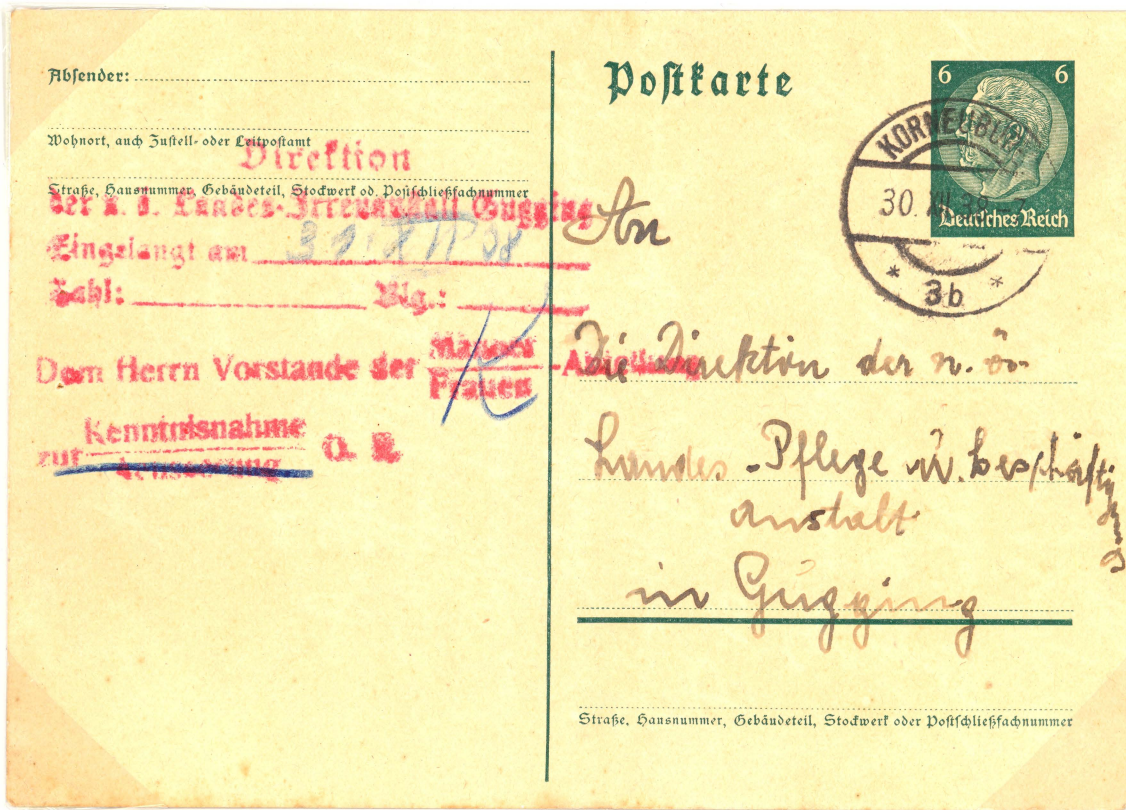 Absender:
Wohnort, auch Zustell- oder Leitpostamt
Straße, Hausnummer, Gebäudeteil, Stockwerk od. Postschließfachnummer
Direktion
der n. ö. Landes-Irrenanstalt Gugging
Eingelangt am 31. XII 38
Zahl: Blg.:
Dem Herrn Vorstande der Männer
Frauen -Abteilung
zur Kenntnisnahme
Äusserung G. R.
Postkarte
6 6
KORNEUBURG
30. XII. 38
Deutsches Reich
* 3b *
An
Die Direktion der n. ö.
Landes-Pflege u. beschäftigungs
anstalt
in Gugging
Straße, Hausnummer, Gebäudeteil, Stockwerk oder Postschließfachnummer